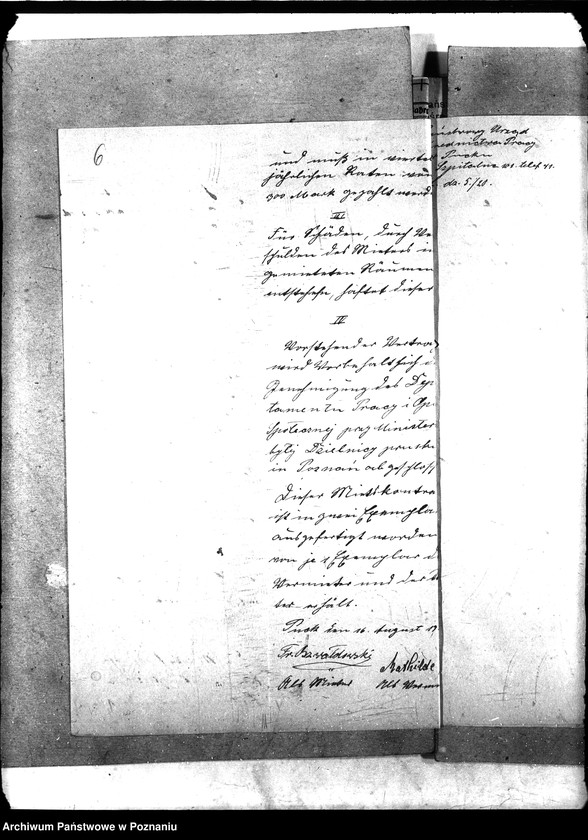 6
und muß in viertel
jährlichen Raten von
900 Mark gezahlt werd
III
Für Schäden, durch Ve
schulden des Mieters in
gemieteten Räumen
entstehen, haftet dieser
IV
Vorstehender Vertrag
wird vorbehaltlich
Genehmigung des Dep
tamentu Pracy i Opi
Społecznej przy Minister
byłej Dzielnicy prusk
in Poznań abgeschloss
Dieser Mietskontra
ist in zwei Exempla
ausgefertigt worden
von je 1 Exemplar d
Vermieter und der
ter erhält.
Puck den 16. August 19
Fr.
Mathilde
Als Mieter
Als Verm
Urząd
Pracy
Pucku
Szpitalna
Archiwum Państwowe w Poznaniu